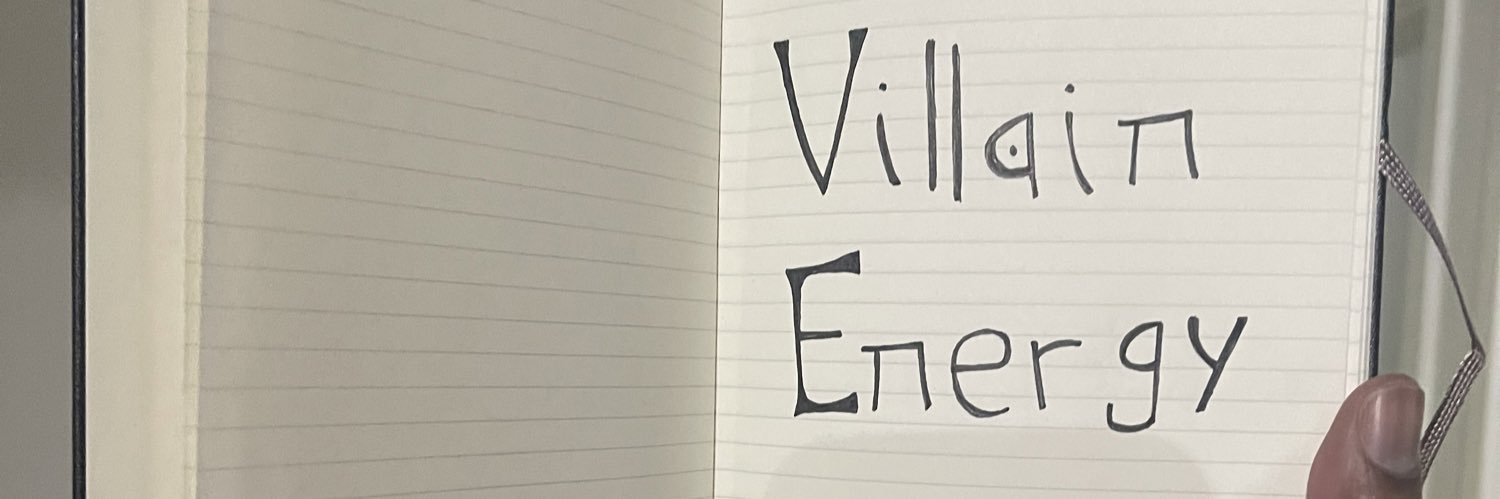 Villain
Energy